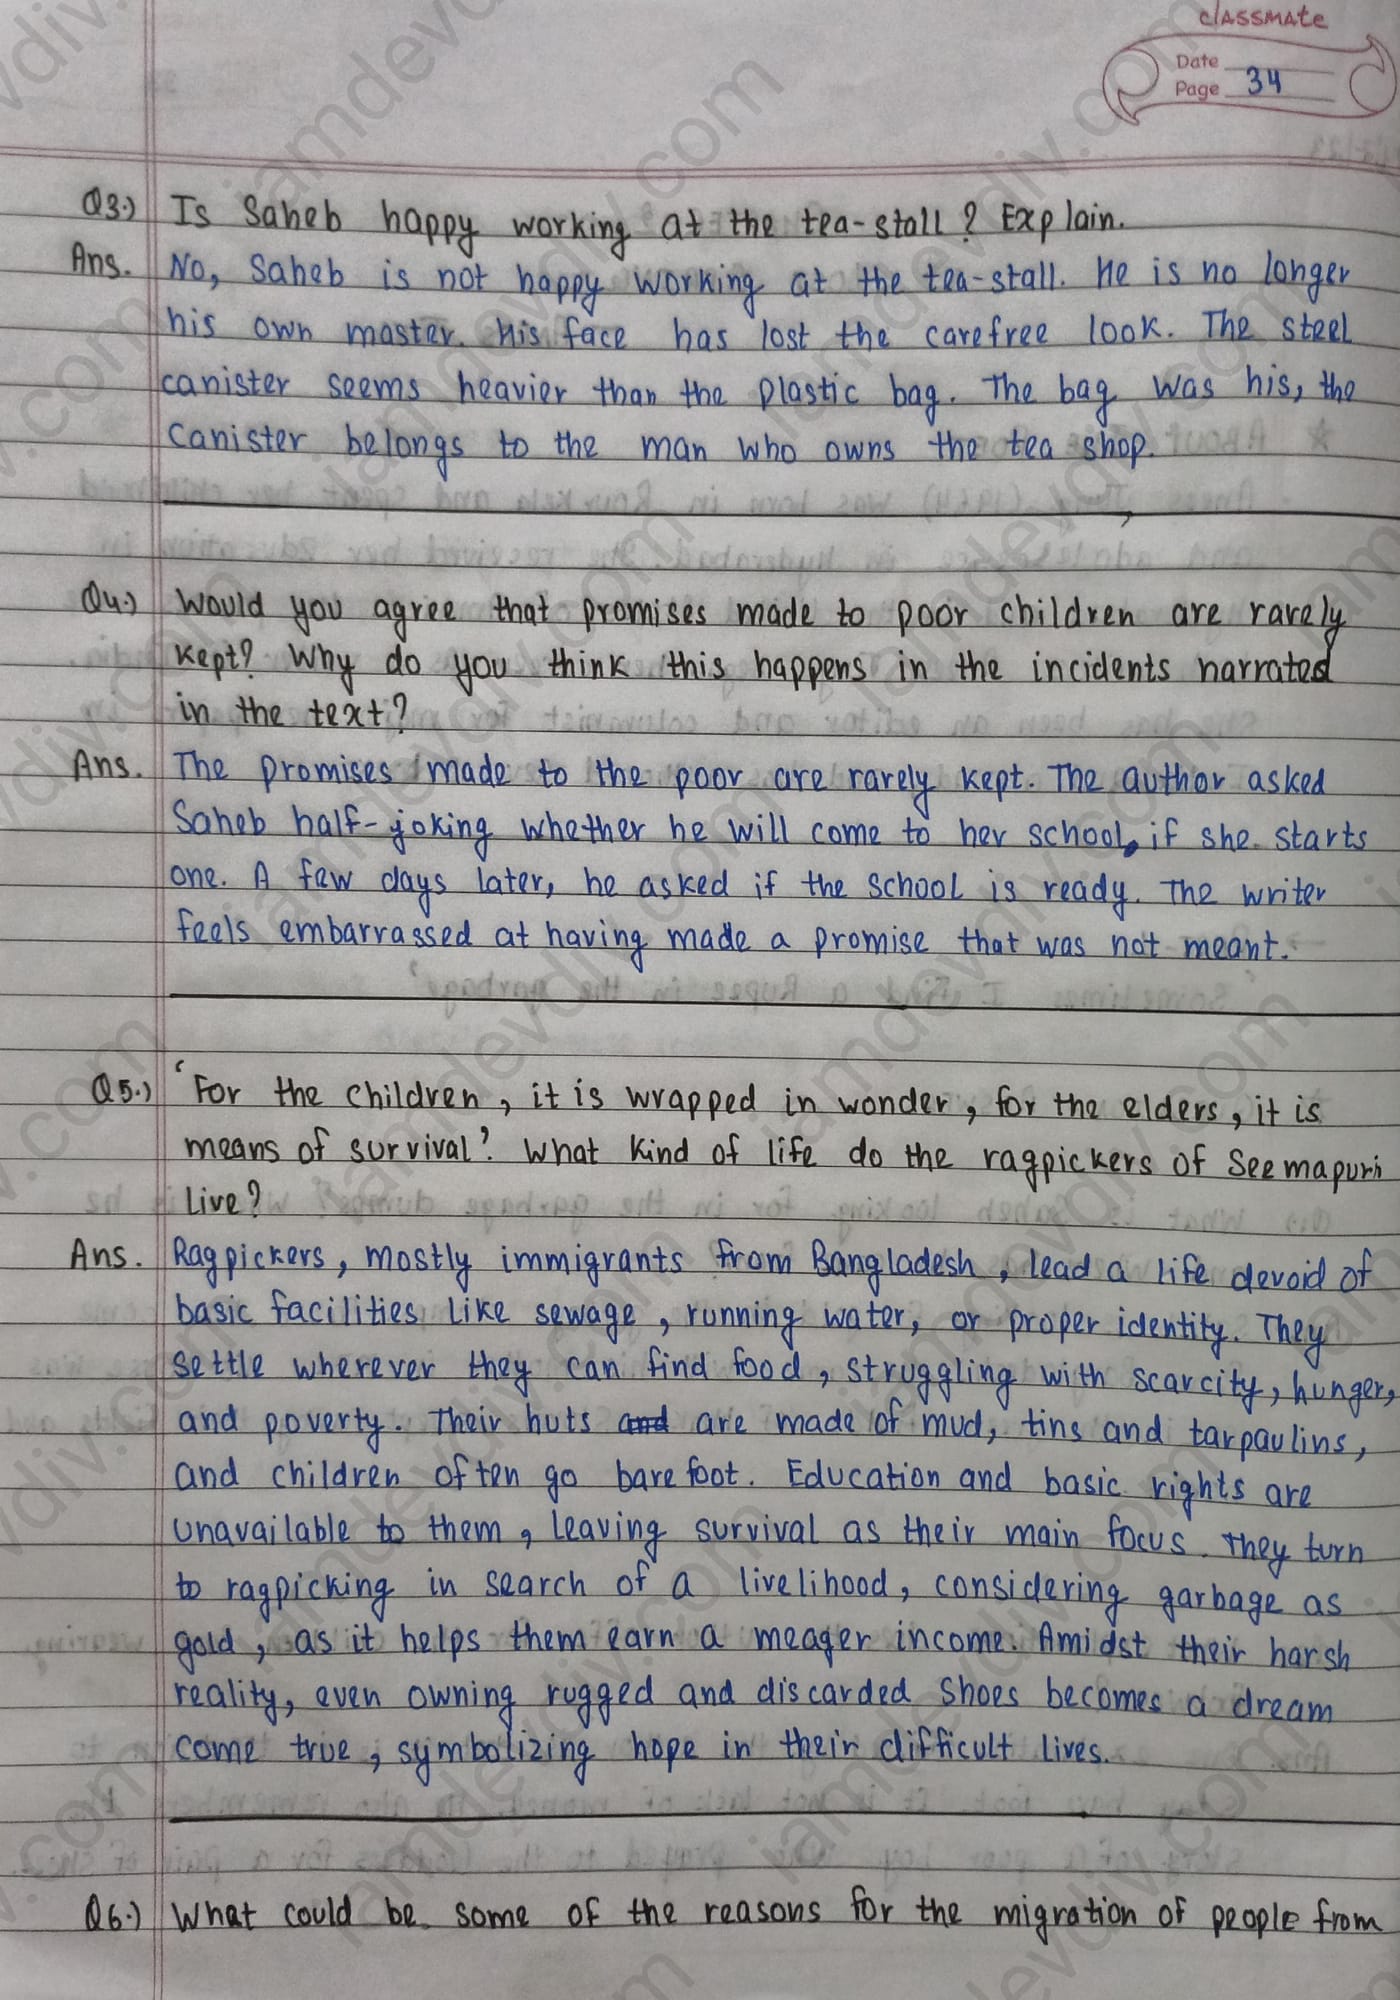 classmate
Date
Page 34
Q3.) Is Saheb happy working at the tea-stall? Explain.
Ans. No, Saheb is not happy working at the tea-stall. He is no longer
his own master. His face has lost the carefree look. The steel
canister seems heavier than the plastic bag. The bag was his, the
canister belongs to the man who owns the tea shop.
Q4.) Would you agree that promises made to poor children are rarely
kept? Why do you think this happens in the incidents narrated
in the text?
Ans. The promises made to the poor are rarely kept. The author asked
Saheb half-joking whether he will come to her school, if she starts
one. A few days later, he asked if the school is ready. The writer
feels embarrassed at having made a promise that was not meant.
Q5.) 'For the children, it is wrapped in wonder, for the elders, it is
means of survival'. What kind of life do the ragpickers of Seemapuri
live?
Ans. Ragpickers, mostly immigrants from Bangladesh, lead a life devoid of
basic facilities like sewage, running water, or proper identity. They
settle wherever they can find food, struggling with scarcity, hunger,
and poverty. Their huts and are made of mud, tins and tarpaulins,
and children often go barefoot. Education and basic rights are
unavailable to them, leaving survival as their main focus. They turn
to ragpicking in search of a livelihood, considering garbage as
gold, as it helps them earn a meager income. Amidst their harsh
reality, even owning rugged and discarded shoes becomes a dream
come true, symbolizing hope in their difficult lives.
Q6.) What could be some of the reasons for the migration of people from
iamdevdiv.com